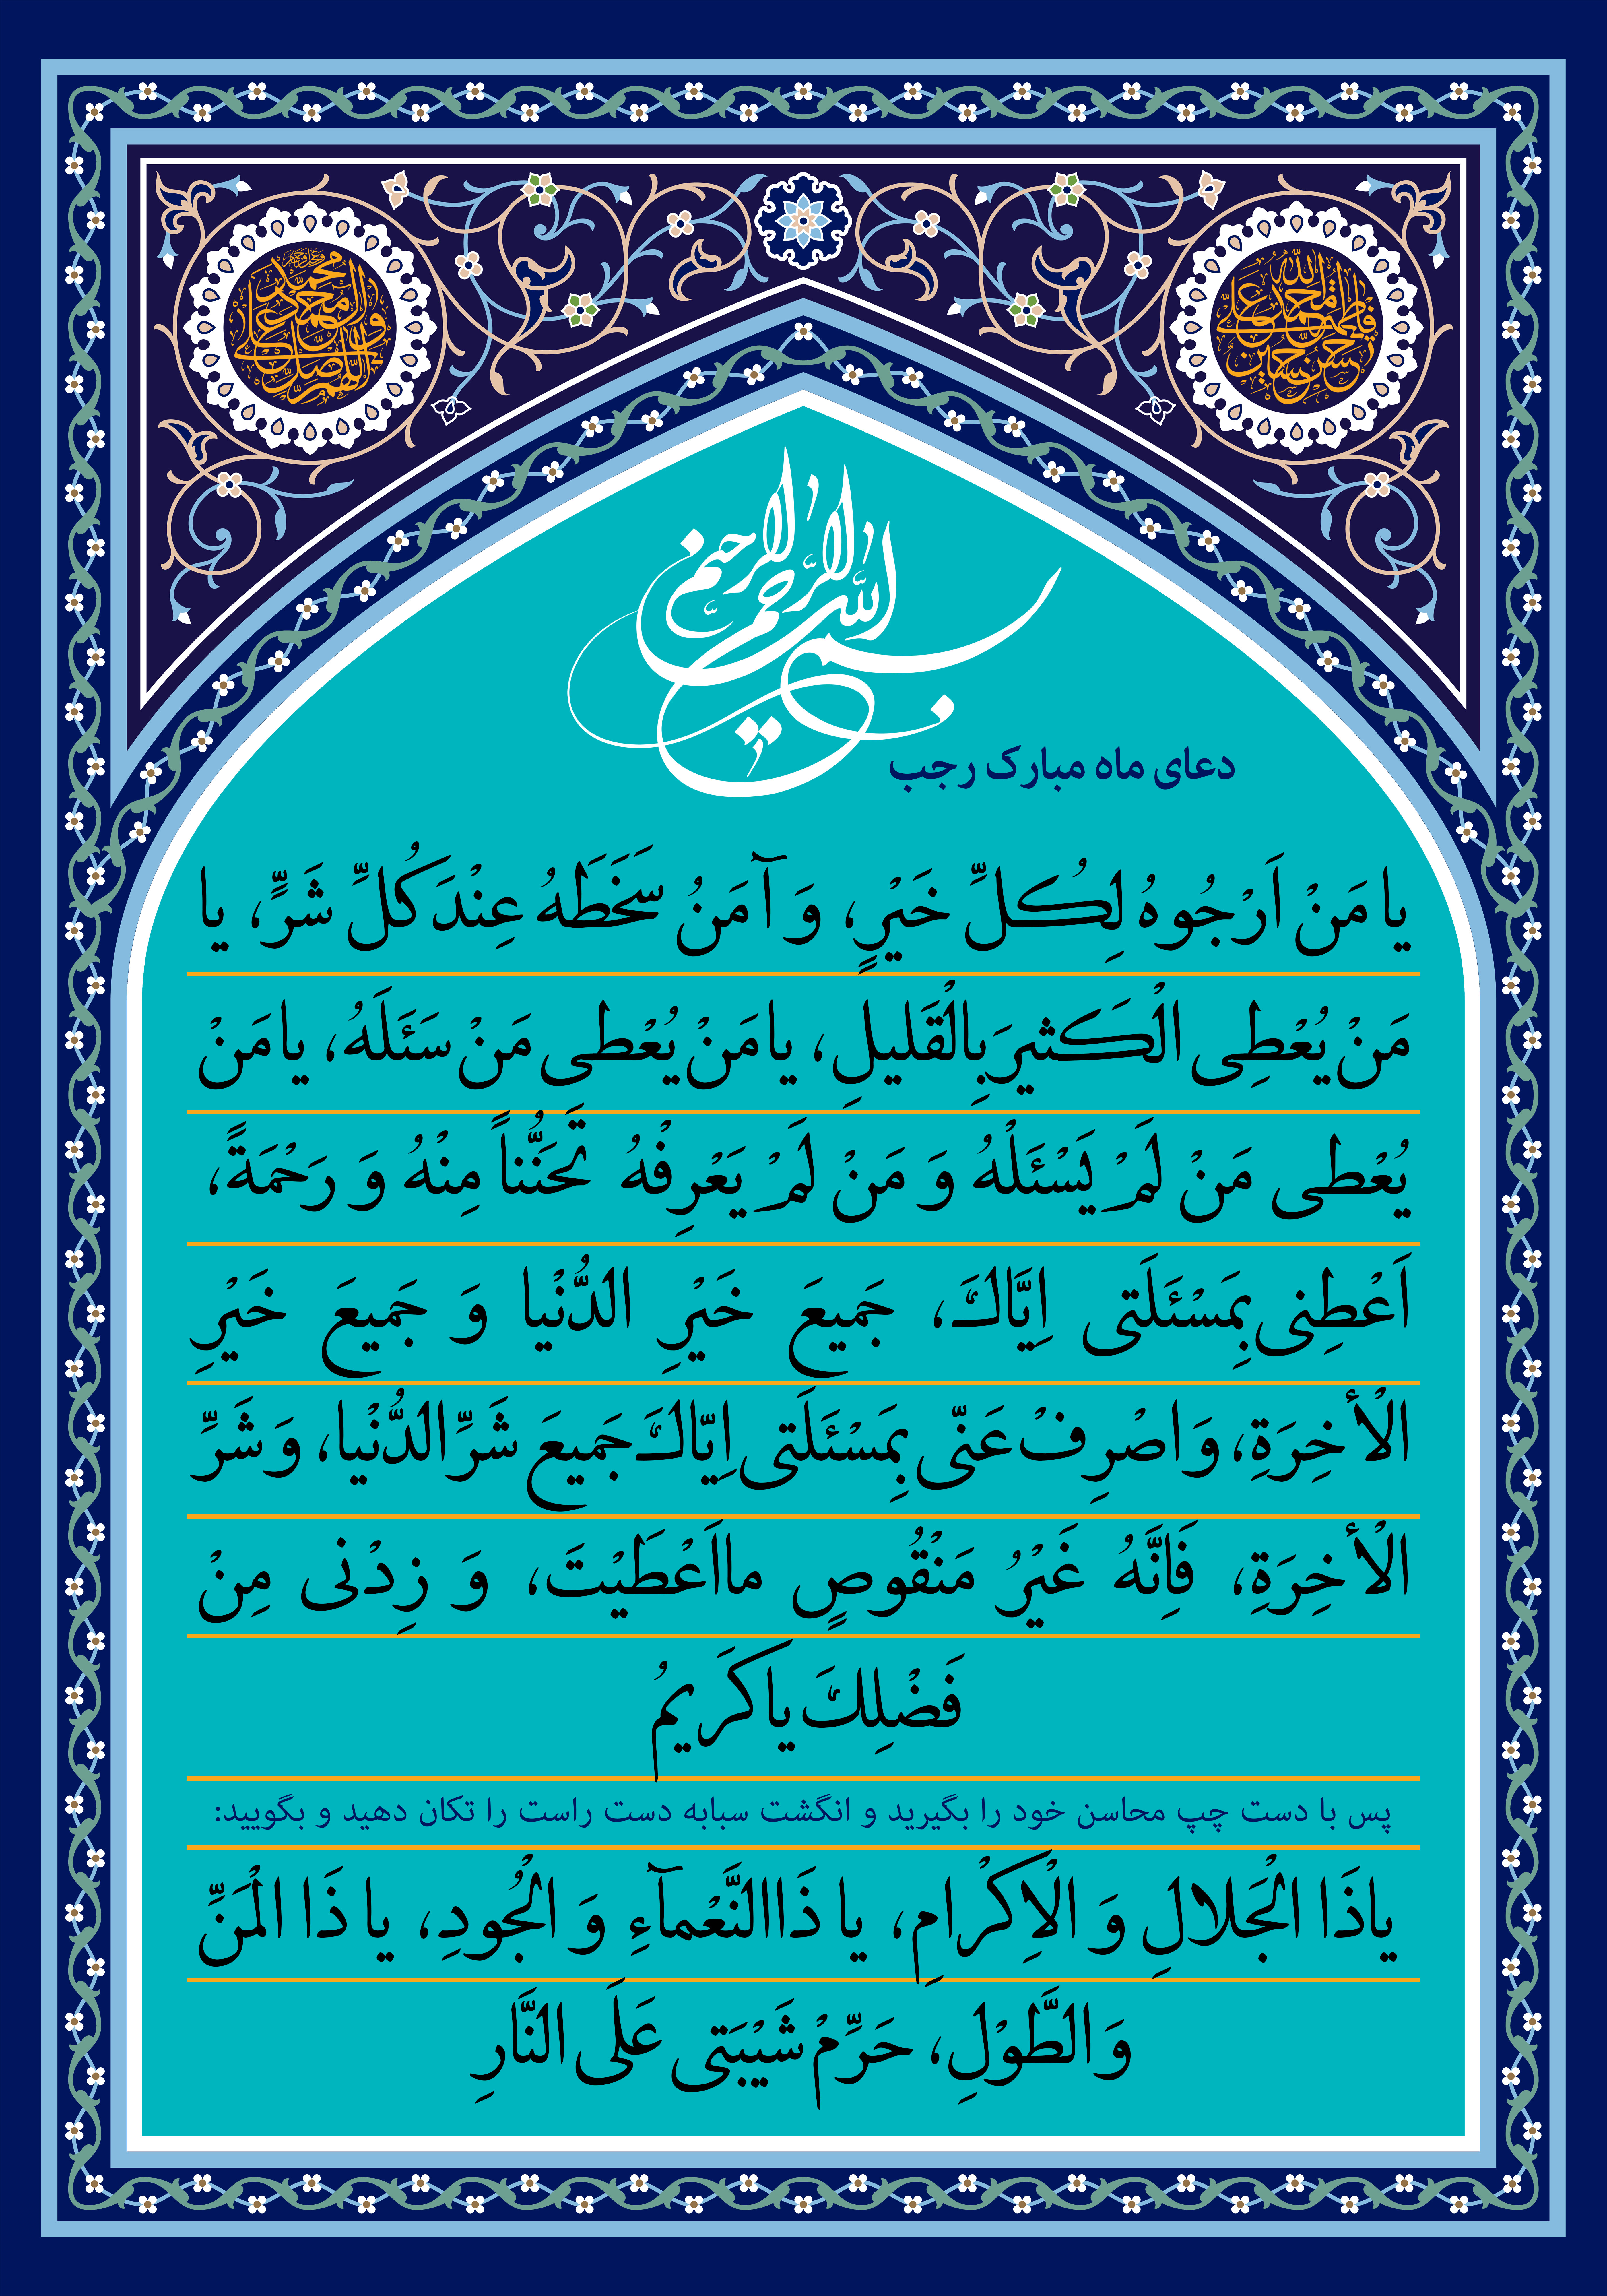 اللهم صل علی محمد و آل محمد
الله محمد علی فاطمه حسن حسین
بسم الله الرحمن الرحیم
دعای ماه مبارک رجب
یا مَنْ اَرْجُوهُ لِکُلِّ خَیْرٍ، وَ آمَنُ سَخَطَهُ عِنْدَ کُلِّ شَرٍّ، یا
مَنْ یُعْطِی الْکَثیرَ بِالْقَلیلِ، یا مَنْ یُعْطی مَنْ سَئَلَهُ، یا مَنْ
یُعْطی مَنْ لَمْ یَسْئَلْهُ وَ مَنْ لَمْ یَعْرِفْهُ تَحَنُّناً مِنْهُ وَ رَحْمَةً،
اَعْطِنی بِمَسْئَلَتی اِیَّاكَ، جَمیعَ خَیْرِ الدُّنْیا وَ جَمیعَ خَیْرِ
الْأخِرَةِ، وَ اصْرِفْ عَنّی بِمَسْئَلَتی اِیّاكَ جَمیعَ شَرِّ الدُّنْیا، وَ شَرِّ
الْأخِرَةِ، فَاِنَّهُ غَیْرُ مَنْقُوصٍ ما اَعْطَیْتَ، وَ زِدْنی مِنْ
فَضْلِكَ یا کَریمُ
پس با دست چپ محاسن خود را بگیرید و انگشت سبابه دست راست را تکان دهید و بگویید:
یا ذَا الْجَلالِ وَ الْاِکْرامِ، یا ذَا النَّعْمآءِ وَ الْجُودِ، یا ذَا الْمَنِّ
وَ الطَّوْلِ، حَرِّمْ شَیْبَتی عَلَی النَّارِ